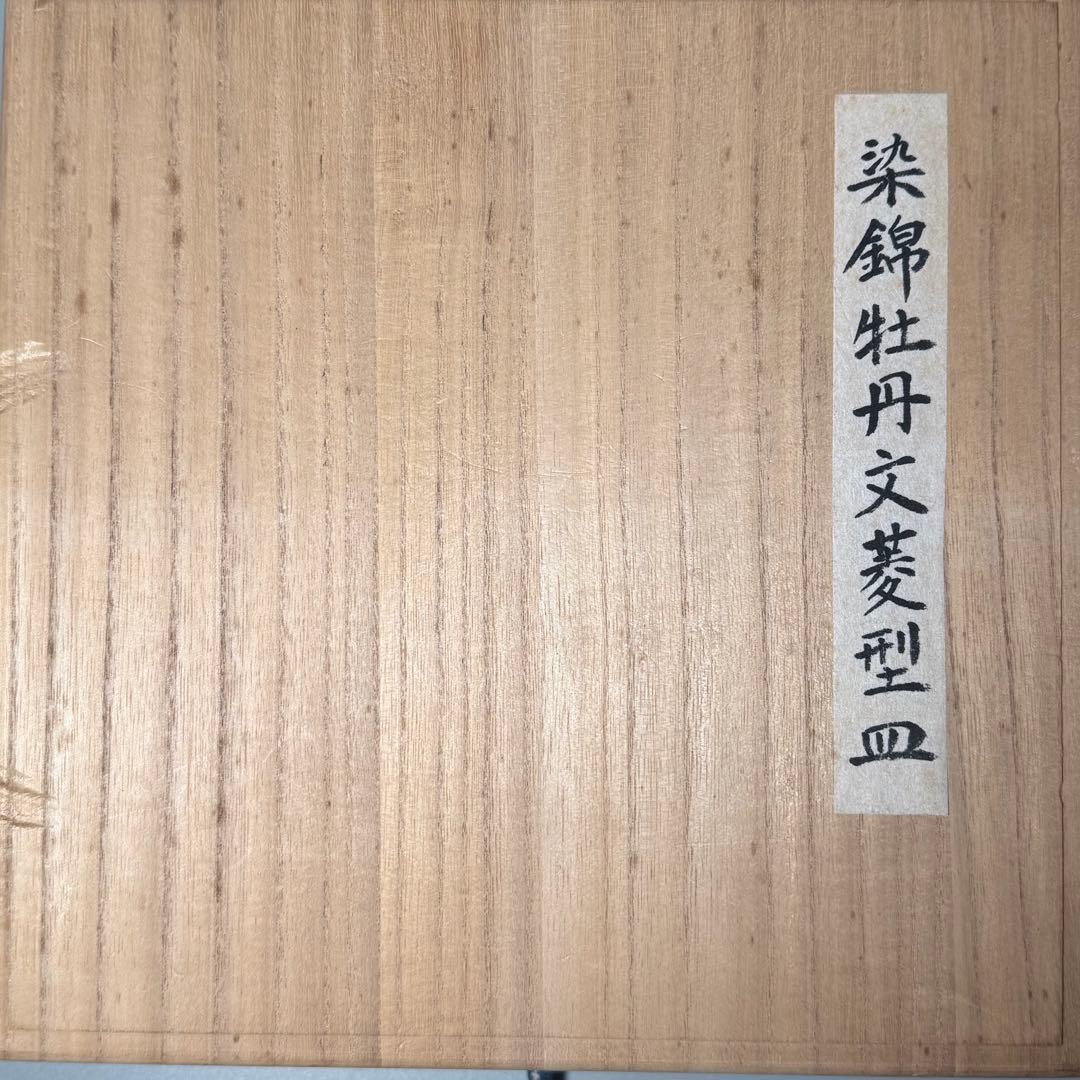 染錦牡丹文菱型皿